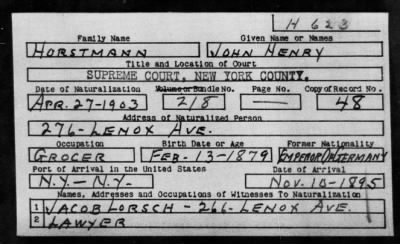 H 623
Family Name Given Name or Names
HORSTMANN JOHN HENRY
Title and Location of Court
SUPREME COURT, NEW YORK COUNTY.
Date of Naturalization Volume or Bundle No. Page No. Copy of Record No.
APR. 27-1903 218 — 48
Address of Naturalized Person
276-LENOX AVE.
Occupation Birth Date or Age Former Nationality
GROCER FEB-13-1879 EMPEROR OF GERMANY
Port of Arrival in the United States Date of Arrival
N.Y.-N.Y. NOV.10-1895
Names, Addresses and Occupations of Witnesses To Naturalization
1 JACOB LORSCH-266-LENOX AVE.
2 LAWYER